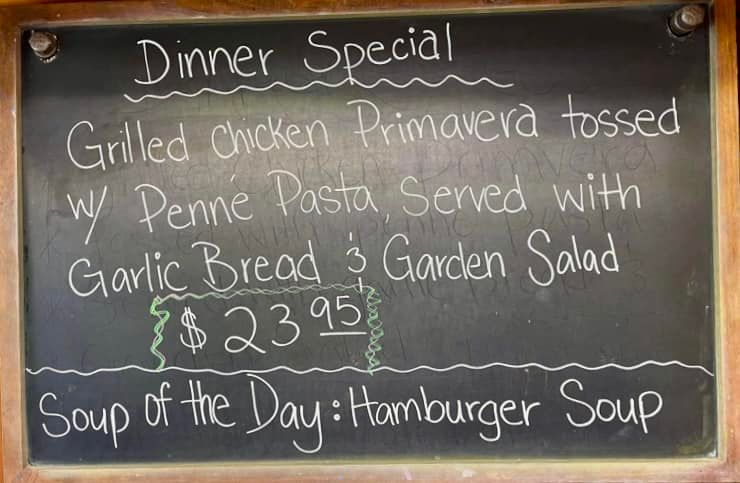 Dinner Special
Grilled chicken Primavera tossed
w/ Penné Pasta, Served with
Garlic Bread & Garden Salad
$ 23 95
Soup of the Day: Hamburger Soup